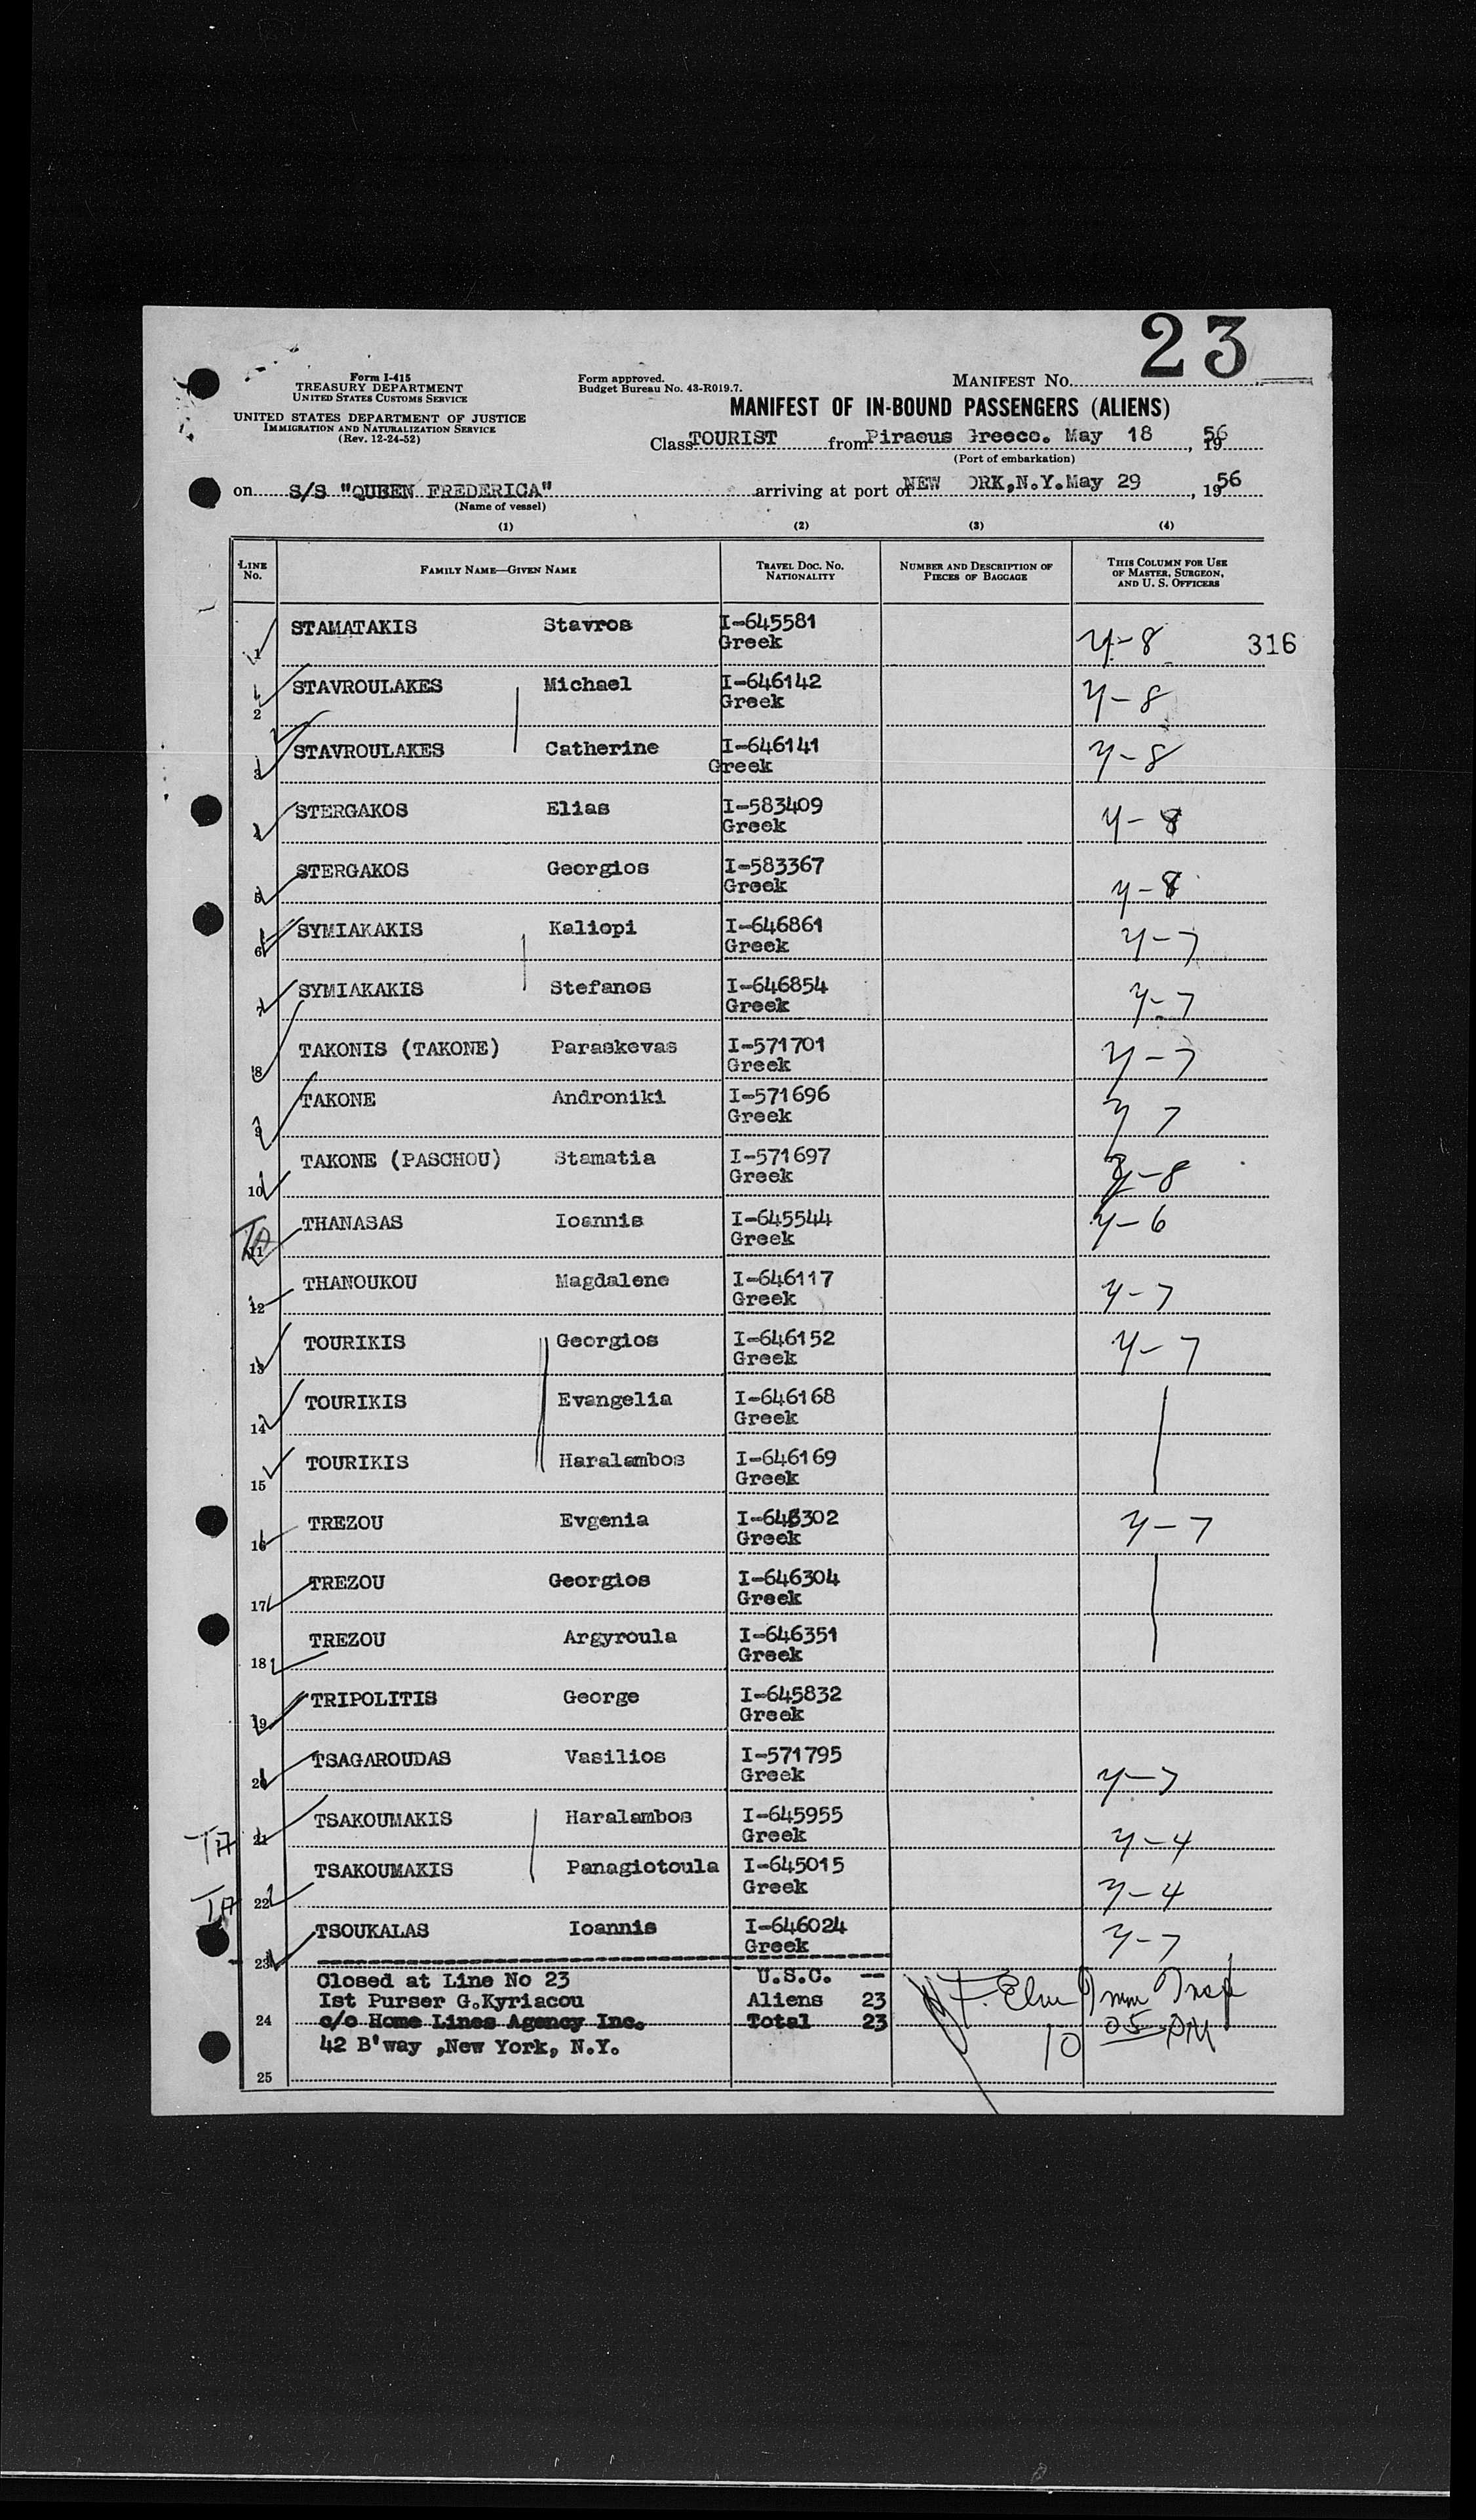 23
Form I-415
TREASURY DEPARTMENT
UNITED STATES CUSTOMS SERVICE
UNITED STATES DEPARTMENT OF JUSTICE
IMMIGRATION AND NATURALIZATION SERVICE
(Rev. 12-24-52)
Form approved.
Budget Bureau No. 43-R019.7.
MANIFEST NO.
MANIFEST OF IN-BOUND PASSENGERS (ALIENS)
Class TOURIST from Piraeus Greece. May 18, 1956
(Port of embarkation)
on S/S "QUEEN FREDERICA" arriving at port of NEW ORK, N.Y. May 29, 1956
(Name of vessel)
(1) (2) (3) (4)
LINE NO. FAMILY NAME—GIVEN NAME TRAVEL DOC. NO. NATIONALITY NUMBER AND DESCRIPTION OF PIECES OF BAGGAGE THIS COLUMN FOR USE OF MASTER, SURGEON, AND U. S. OFFICERS
1 STAMATAKIS Stavros I-645581 Greek y-8 316
2 STAVROULAKES Michael I-646142 Greek y-8
3 STAVROULAKES Catherine I-646141 Greek y-8
4 STERGAKOS Elias I-583409 Greek y-8
5 STERGAKOS Georgios I-583367 Greek y-8
6 SYMIAKAKIS Kaliopi I-646861 Greek y-7
7 SYMIAKAKIS Stefanos I-646854 Greek y-7
8 TAKONIS (TAKONE) Paraskevas I-571701 Greek y-7
9 TAKONE Androniki I-571696 Greek y 7
10 TAKONE (PASCHOU) Stamatia I-571697 Greek y-8
TA 11 THANASAS Ioannis I-645544 Greek y-6
12 THANOUKOU Magdalene I-646117 Greek y-7
13 TOURIKIS Georgios I-646152 Greek y-7
14 TOURIKIS Evangelia I-646168 Greek
15 TOURIKIS Haralambos I-646169 Greek
16 TREZOU Evgenia I-646302 Greek y-7
17 TREZOU Georgios I-646304 Greek
18 TREZOU Argyroula I-646351 Greek
19 TRIPOLITIS George I-645832 Greek
20 TSAGAROUDAS Vasilios I-571795 Greek y-7
TA 21 TSAKOUMAKIS Haralambos I-645955 Greek y-4
TA 22 TSAKOUMAKIS Panagiotoula I-645015 Greek y-4
23 TSOUKALAS Ioannis I-646024 Greek y-7
Closed at Line No 23 U.S.C. --
Ist Purser G.Kyriacou Aliens 23
24 c/o Home Lines Agency Inc. Total 23
42 B'way ,New York, N.Y.
Imm Insp
10 05 PM
25